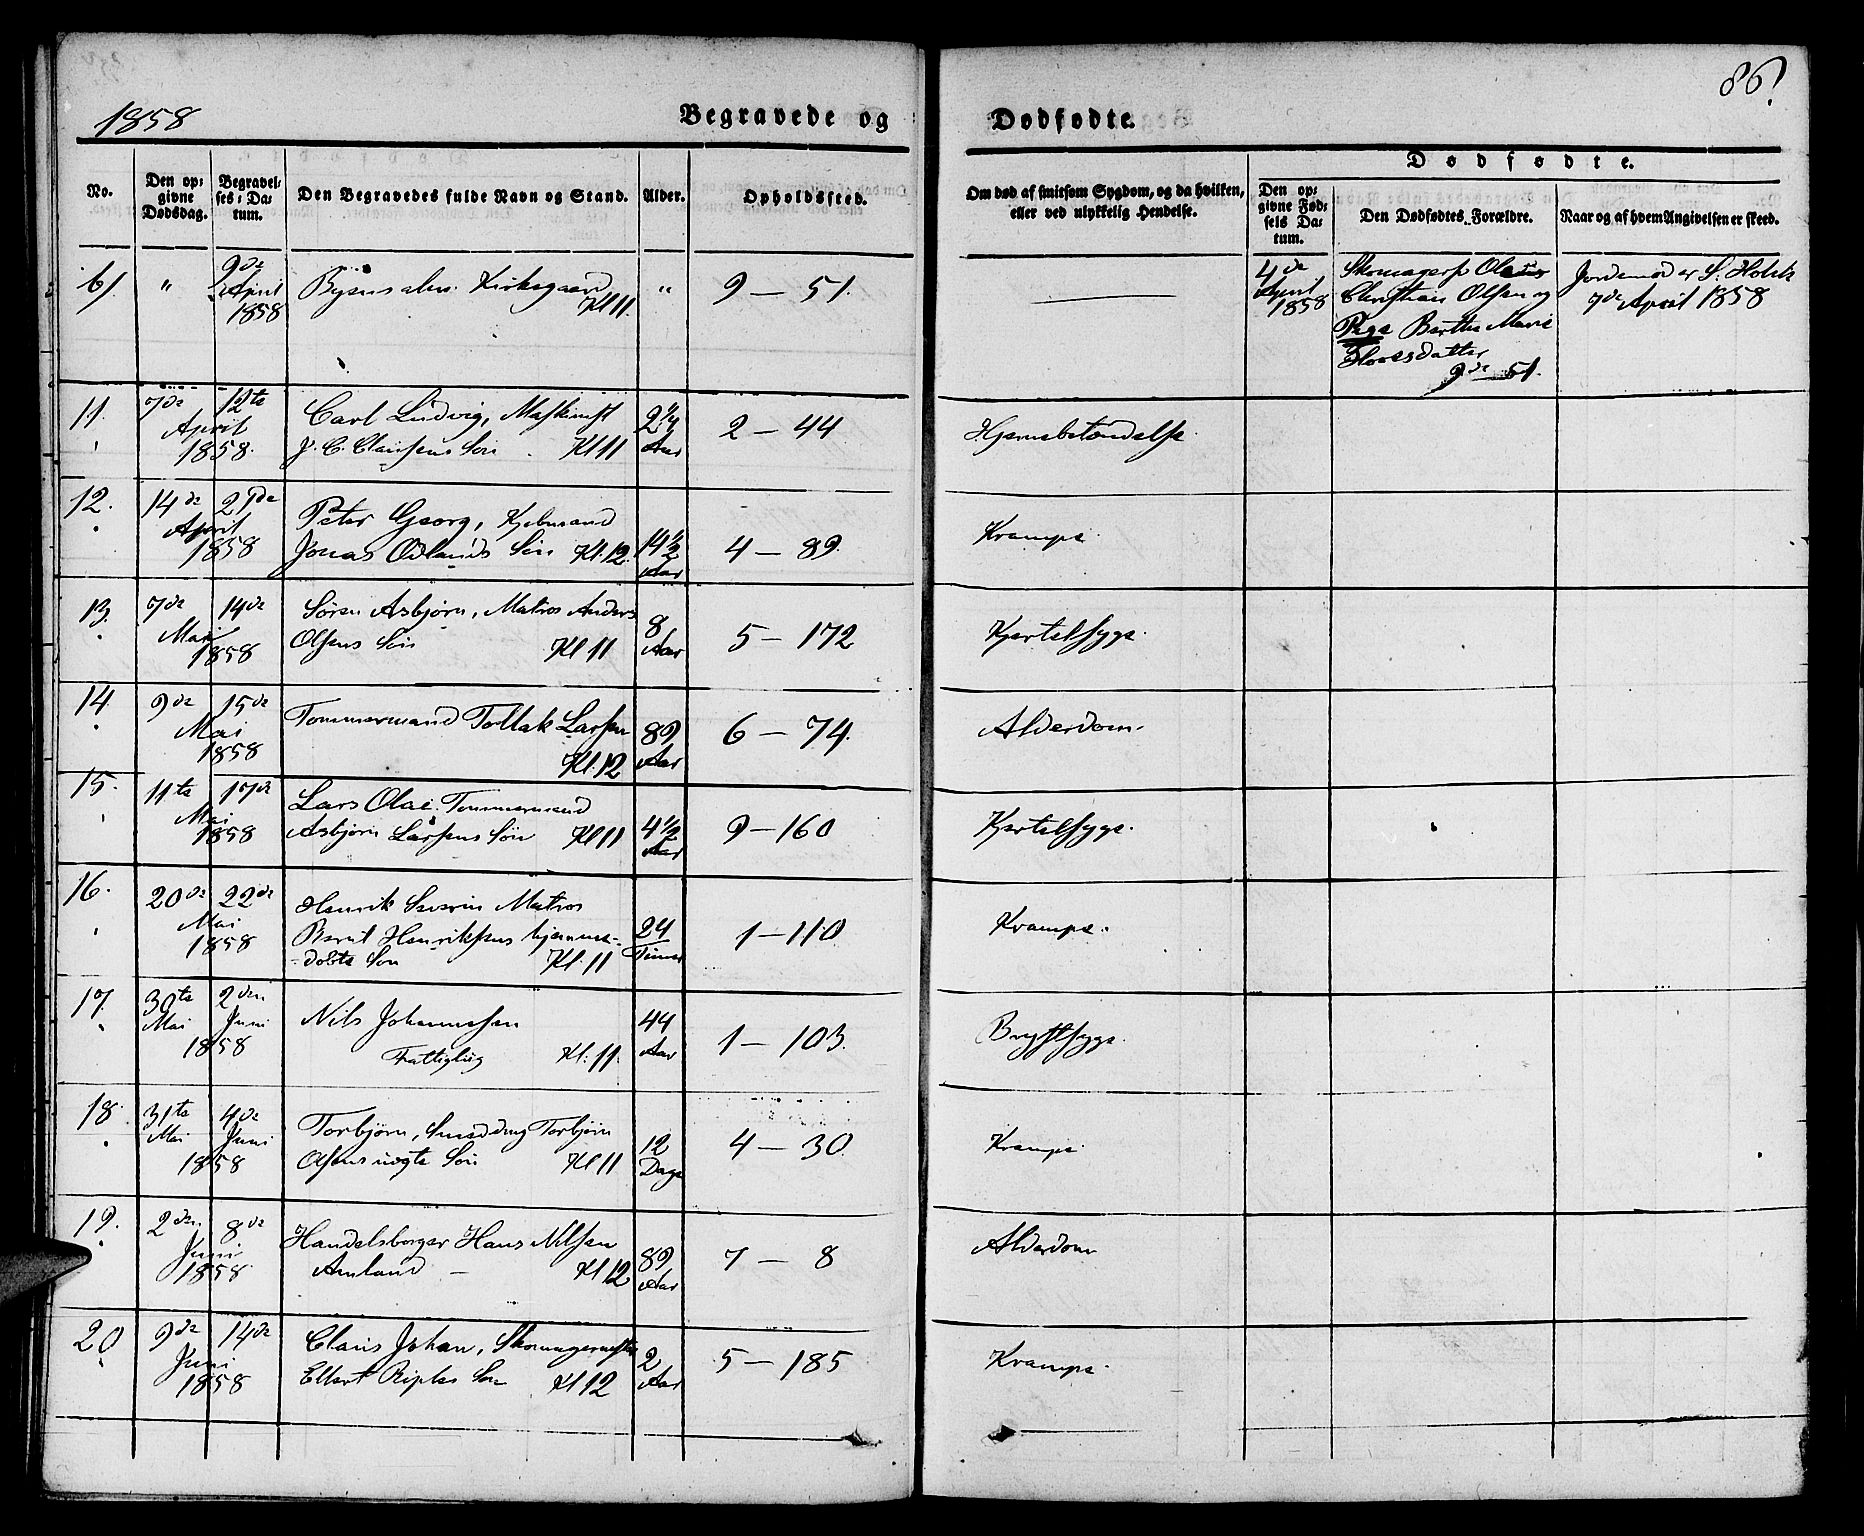 1858
Begravede og
Dødfødte.
86
No.
Den op-
givne
Dødsdag.
Begravel-
ses-Da-
tum.
Den Begravedes fulde Navn og Stand.
Alder.
Opholdssted.
Om død af smitsom Sygdom, og da hvilken,
eller ved ulykkelig Hendelse.
Dødfødte.
Den op-
givne Fød-
sels Da-
tum.
Den Dødfødtes Forældre.
Naar og af hvem Angivelsen er skeed.
6/. " 9de April 1858
Byens alm. Kirkegaard
Kl 11
" 9 – 51.
4de April 1858
Skomagersv
Christian Olsen og
Pige Berthe Marie
9de – 51.
Jordemoder S. Holck
7de April 1858
11. 7de 12te April 1858.
Carl Ludvig, Maskinist
J. C. Clausens Søn Kl 11
Aar
2 – 44
Hjernebetændelse
12. 14de 21de April 1858
Peter Georg, Kjøbmand
Jonas Ødlands Søn Kl. 12
14 1/2 Aar
4 – 89.
Krampe.
13. 7de 14de Mai 1858
Søren Asbjørn, Matros Anders
Olsens Søn Kl 11
8 Aar
5 – 172
Kjertelsyge.
14. 9de 15de Mai 1858
Tømmermand Tollak Larsen
Kl. 12
89 Aar
6 – 74.
Alderdom.
15. 11te 17de Mai 1858
Lars Olai. Tømmermand
Asbjørn Larsens Søn Kl 11
4 1/2 Aar
9 – 160
Kjertelsyge.
16. 20de 22de Mai 1858
Henrik Severin Matros
Bernt Henriksens hjemme-
døbte Søn Kl. 11
24 Timer
1 – 110
Krampe.
17. 30te Mai 2den Juni 1858
Nils Johannesen
Fattiglag Kl: 11.
44 Aar
1 – 103.
Brystsyge.
18. 31te Mai 4de Juni 1858
Torbjørn, Smeddreng Torbjørn
Olsens uægte Søn Kl 11
12 Dage
4 – 30.
Krampe.
19. 2den 8de Juni 1858.
Handelsborger Hans Nilsen
Amland – Kl 12
89 Aar
7 – 8
Alderdom
20 9de 14de Juni 1858
Claus Johan, Skomagermester
Ellert Søn Kl 12
2 Aar
5 – 185
Krampe.